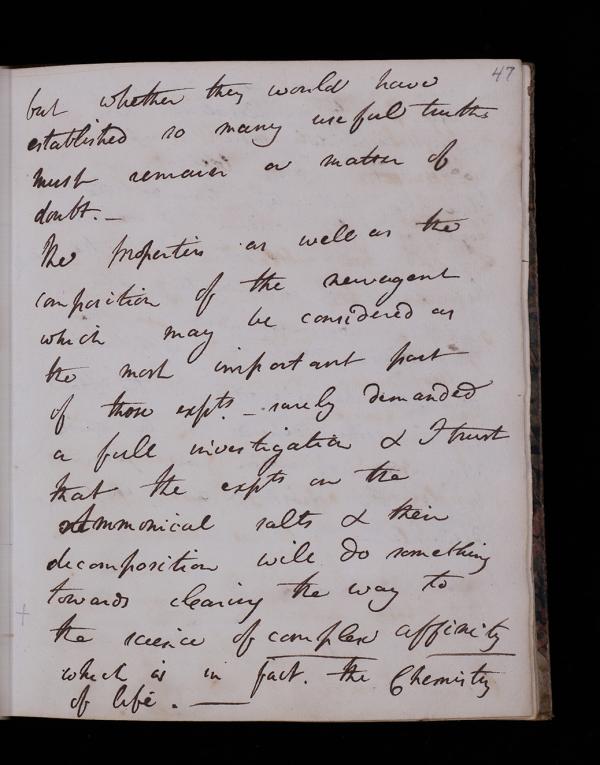 47
but whether they would have
established so many useful truths
must remain a matter of
doubt. _
The properties as well as the
composition of the new agent
which may be considered as
the most important part
of those expts _ surely demanded
a full investigation & I trust
that the expts on the
Ammonical salts & their
decomposition will do something
towards clearing the way to
+ the science of complex affinity
which is in fact. the Chemistry
of life. __